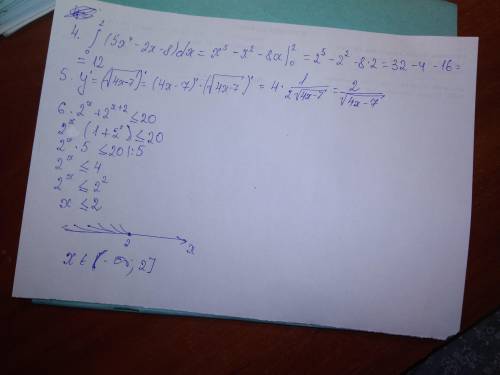 4. ∫₀² (5x⁴ - 2x - 8)dx = x⁵ - x² - 8x |₀² = 2⁵ - 2² - 8·2 = 32 - 4 - 16 =
= 12
5. y' = (√4x-7)' = (4x-7)' · (√4x-7)' = 4 · 1/(2√4x-7) = 2/√4x-7
6. 2ˣ + 2ˣ⁺² ≤ 20
2ˣ (1 + 2²) ≤ 20
2ˣ · 5 ≤ 20 |:5
2ˣ ≤ 4
2ˣ ≤ 2²
x ≤ 2
2 x
x ∈ (-∞; 2]